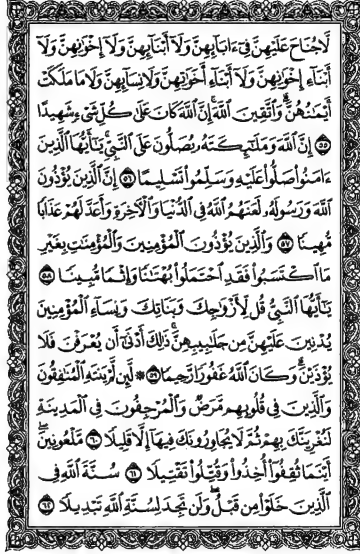 لَّا جُنَاحَ عَلَيْهِنَّ فِيٓ ءَابَآئِهِنَّ وَلَآ أَبْنَآئِهِنَّ وَلَآ إِخْوَٰنِهِنَّ وَلَآ
أَبْنَآءِ إِخْوَٰنِهِنَّ وَلَآ أَبْنَآءِ أَخَوَٰتِهِنَّ وَلَا نِسَآئِهِنَّ وَلَا مَا مَلَكَتْ
أَيْمَٰنُهُنَّۗ وَٱتَّقِينَ ٱللَّهَۚ إِنَّ ٱللَّهَ كَانَ عَلَىٰ كُلِّ شَىْءٍ شَهِيدًا
٥٥ إِنَّ ٱللَّهَ وَمَلَٰٓئِكَتَهُۥ يُصَلُّونَ عَلَى ٱلنَّبِىِّۚ يَٰٓأَيُّهَا ٱلَّذِينَ
ءَامَنُوا۟ صَلُّوا۟ عَلَيْهِ وَسَلِّمُوا۟ تَسْلِيمًا ٥٦ إِنَّ ٱلَّذِينَ يُؤْذُونَ
ٱللَّهَ وَرَسُولَهُۥ لَعَنَهُمُ ٱللَّهُ فِى ٱلدُّنْيَا وَٱلْءَاخِرَةِ وَأَعَدَّ لَهُمْ عَذَابًا
مُّهِينًا ٥٧ وَٱلَّذِينَ يُؤْذُونَ ٱلْمُؤْمِنِينَ وَٱلْمُؤْمِنَٰتِ بِغَيْرِ
مَا ٱكْتَسَبُوا۟ فَقَدِ ٱحْتَمَلُوا۟ بُهْتَٰنًا وَإِثْمًا مُّبِينًا ٥٨
يَٰٓأَيُّهَا ٱلنَّبِىُّ قُل لِّأَزْوَٰجِكَ وَبَنَاتِكَ وَنِسَآءِ ٱلْمُؤْمِنِينَ
يُدْنِينَ عَلَيْهِنَّ مِن جَلَٰبِيبِهِنَّۚ ذَٰلِكَ أَدْنَىٰٓ أَن يُعْرَفْنَ فَلَا
يُؤْذَيْنَۗ وَكَانَ ٱللَّهُ غَفُورًا رَّحِيمًا ٥٩ ۞ لَّئِن لَّمْ يَنتَهِ ٱلْمُنَٰفِقُونَ
وَٱلَّذِينَ فِى قُلُوبِهِم مَّرَضٌ وَٱلْمُرْجِفُونَ فِى ٱلْمَدِينَةِ
لَنُغْرِيَنَّكَ بِهِمْ ثُمَّ لَا يُجَاوِرُونَكَ فِيهَآ إِلَّا قَلِيلًا ٦٠ مَّلْعُونِينَۖ
أَيْنَمَا ثُقِفُوٓا۟ أُخِذُوا۟ وَقُتِّلُوا۟ تَقْتِيلًا ٦١ سُنَّةَ ٱللَّهِ فِى
ٱلَّذِينَ خَلَوْا۟ مِن قَبْلُۖ وَلَن تَجِدَ لِسُنَّةِ ٱللَّهِ تَبْدِيلًا ٦٢